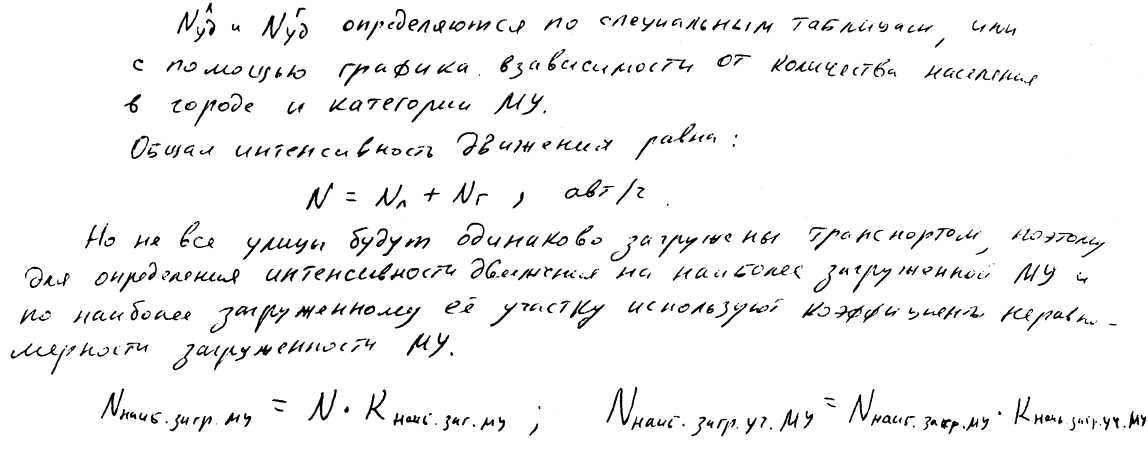 Nуд^Л и Nуд^Г определяются по специальным таблицам, или
с помощью графика взависимости от количества населения
в городе и категории МУ.
Общая интенсивность движения равна:
N = Nл + Nг , авт/ч.
Но не все улицы будут одинаково загружены транспортом, поэтому
для определения интенсивности движения на наиболее загруженной МУ и
по наиболее загруженному её участку используют коэффициенты неравно-
мерности загруженности МУ.
Nнаиб.загр.МУ = N · Kнаиб.заг.МУ ; Nнаиб.загр.уч.МУ = Nнаиб.загр.МУ · Kнаиб.загр.уч.МУ